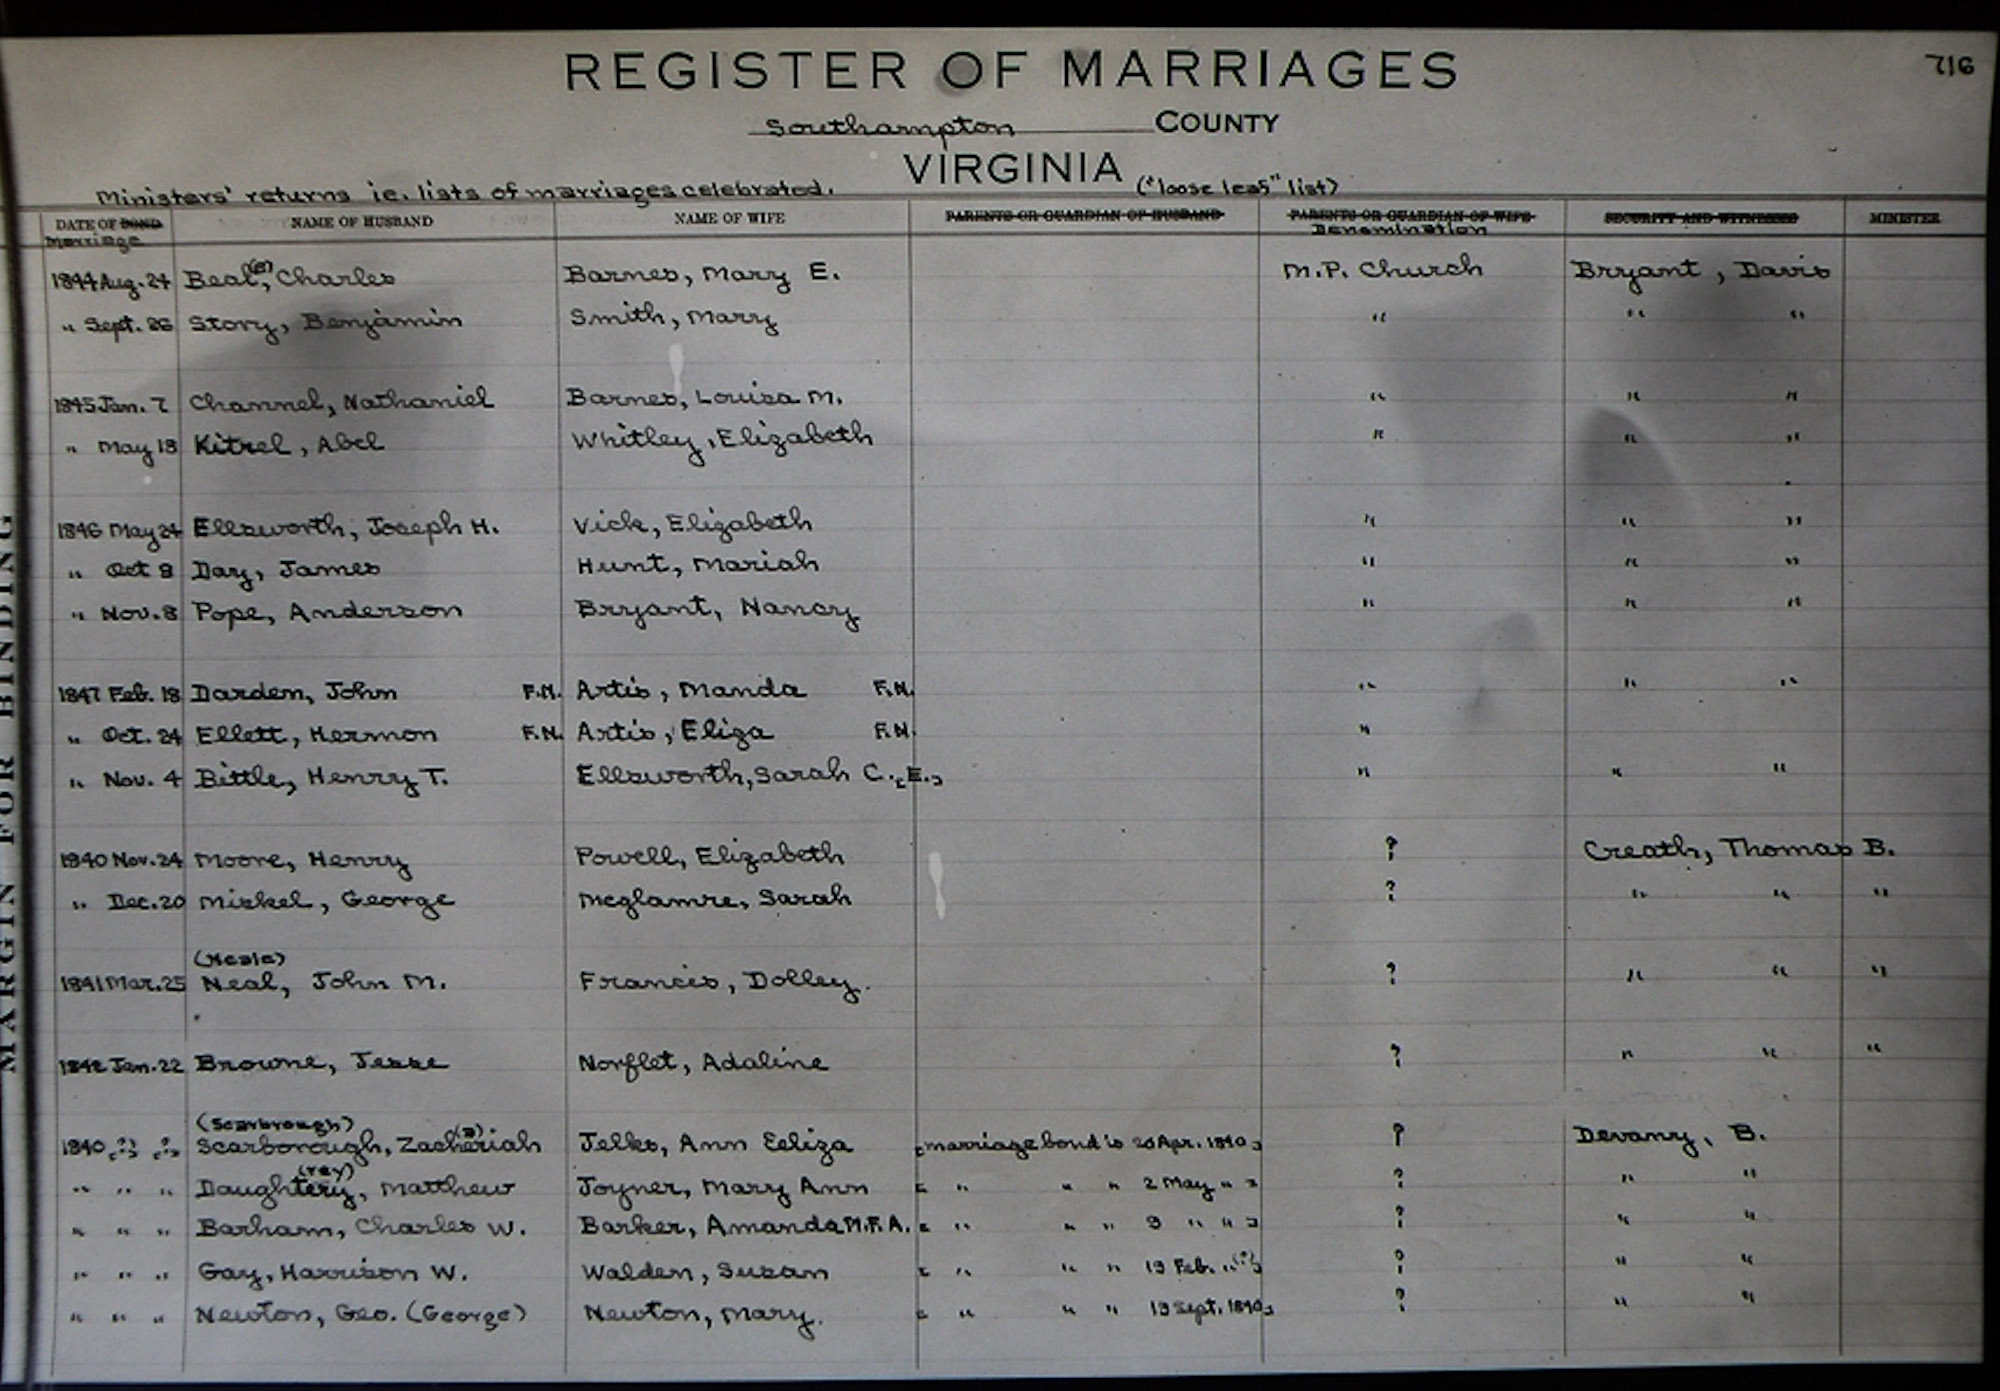 716
REGISTER OF MARRIAGES
Southampton COUNTY
VIRGINIA
Ministers' returns ie. lists of marriages celebrated. ("loose leaf" list)
DATE OF BOND NAME OF HUSBAND NAME OF WIFE PARENTS OR GUARDIAN OF HUSBAND PARENTS OR GUARDIAN OF WIFE SECURITY AND WITNESSES MINISTER
Marriage Denomination
1844 Aug. 24 Beal(e), Charles Barnes, Mary E. M.P. Church Bryant, Davis
" Sept. 26 Story, Benjamin Smith, Mary " " "
1845 Jan. 7 Channel, Nathaniel Barnes, Louisa M. " " "
" May 18 Kitrel, Abel Whitley, Elizabeth " " "
1846 May 24 Ellsworth, Joseph H. Vick, Elizabeth " " "
" Oct 8 Day, James Hunt, Mariah " " "
" Nov. 8 Pope, Anderson Bryant, Nancy " " "
1847 Feb. 18 Darden, John F.N. Artis, Manda F.N. " " "
" Oct. 24 Ellett, Hermon F.N. Artis, Eliza F.N. "
" Nov. 4 Bittle, Henry T. Ellsworth, Sarah C. [E.] " " "
1840 Nov. 24 Moore, Henry Powell, Elizabeth ? Creath, Thomas B.
" Dec. 20 Miskel, George Mcglamre, Sarah ? " " "
(Neale)
1841 Mar. 25 Neal, John M. Francis, Dolley. ? " " "
1842 Jan. 22 Browne, Jesse Norflet, Adaline ? " " "
(Scarbrough) (a)
1840 [?] [?] Scarborough, Zacheriah Jelks, Ann Eeliza [marriage bond is 20 Apr. 1840] ? Devany, B.
(rey)
" " " Daughtery, Matthew Joyner, Mary Ann [ " " " 2 May " ] ? " "
" " " Barham, Charles W. Barker, Amanda M.F.A. [ " " " 9 " " ] ? " "
" " " Gay, Harrison W. Walden, Susan [ " " " 19 Feb. " (?)] ? " "
" " " Newton, Geo. (George) Newton, Mary. [ " " " 19 Sept. 1840] ? " "
MARGIN FOR BINDING